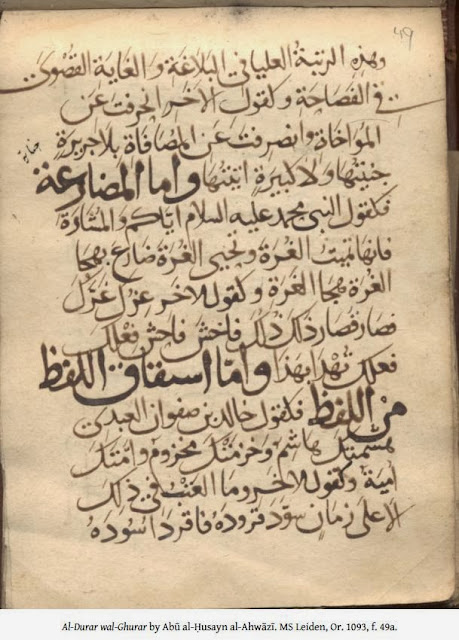 49
وهذه الرتبة العليا في البلاغة والغاية القصوى
في الفصاحة وكقول الآخر انحرفت عن
المواخاة وانصرفت عن المصافاة بلا جريرة
جنيتها ولا كبيرة اتيتها واما المضارعة
فكقول النبي محمد عليه السلام اياكم والمشاوة
فانها تميت الغرة وتحيى العرة ضارع بهجا
الغرة هجا العرة وكقول الاخر عزل عزل
فصار قصار ذلك ذلك فاخش فاحش فعلك
فعلك تهدا بهذا واما اشتقاق اللفظ
من اللفظ فكقول خالد بن صفوان العبدى
هشمتك هاشم وخزمتك مخزوم وامتك
امية وكقول الاخر وما العتب في ذلك
الا على زمان سود قروده فاقرد اسوده
Al-Durar wal-Ghurar by Abū al-Ḥusayn al-Ahwāzī. MS Leiden, Or. 1093, f. 49a.